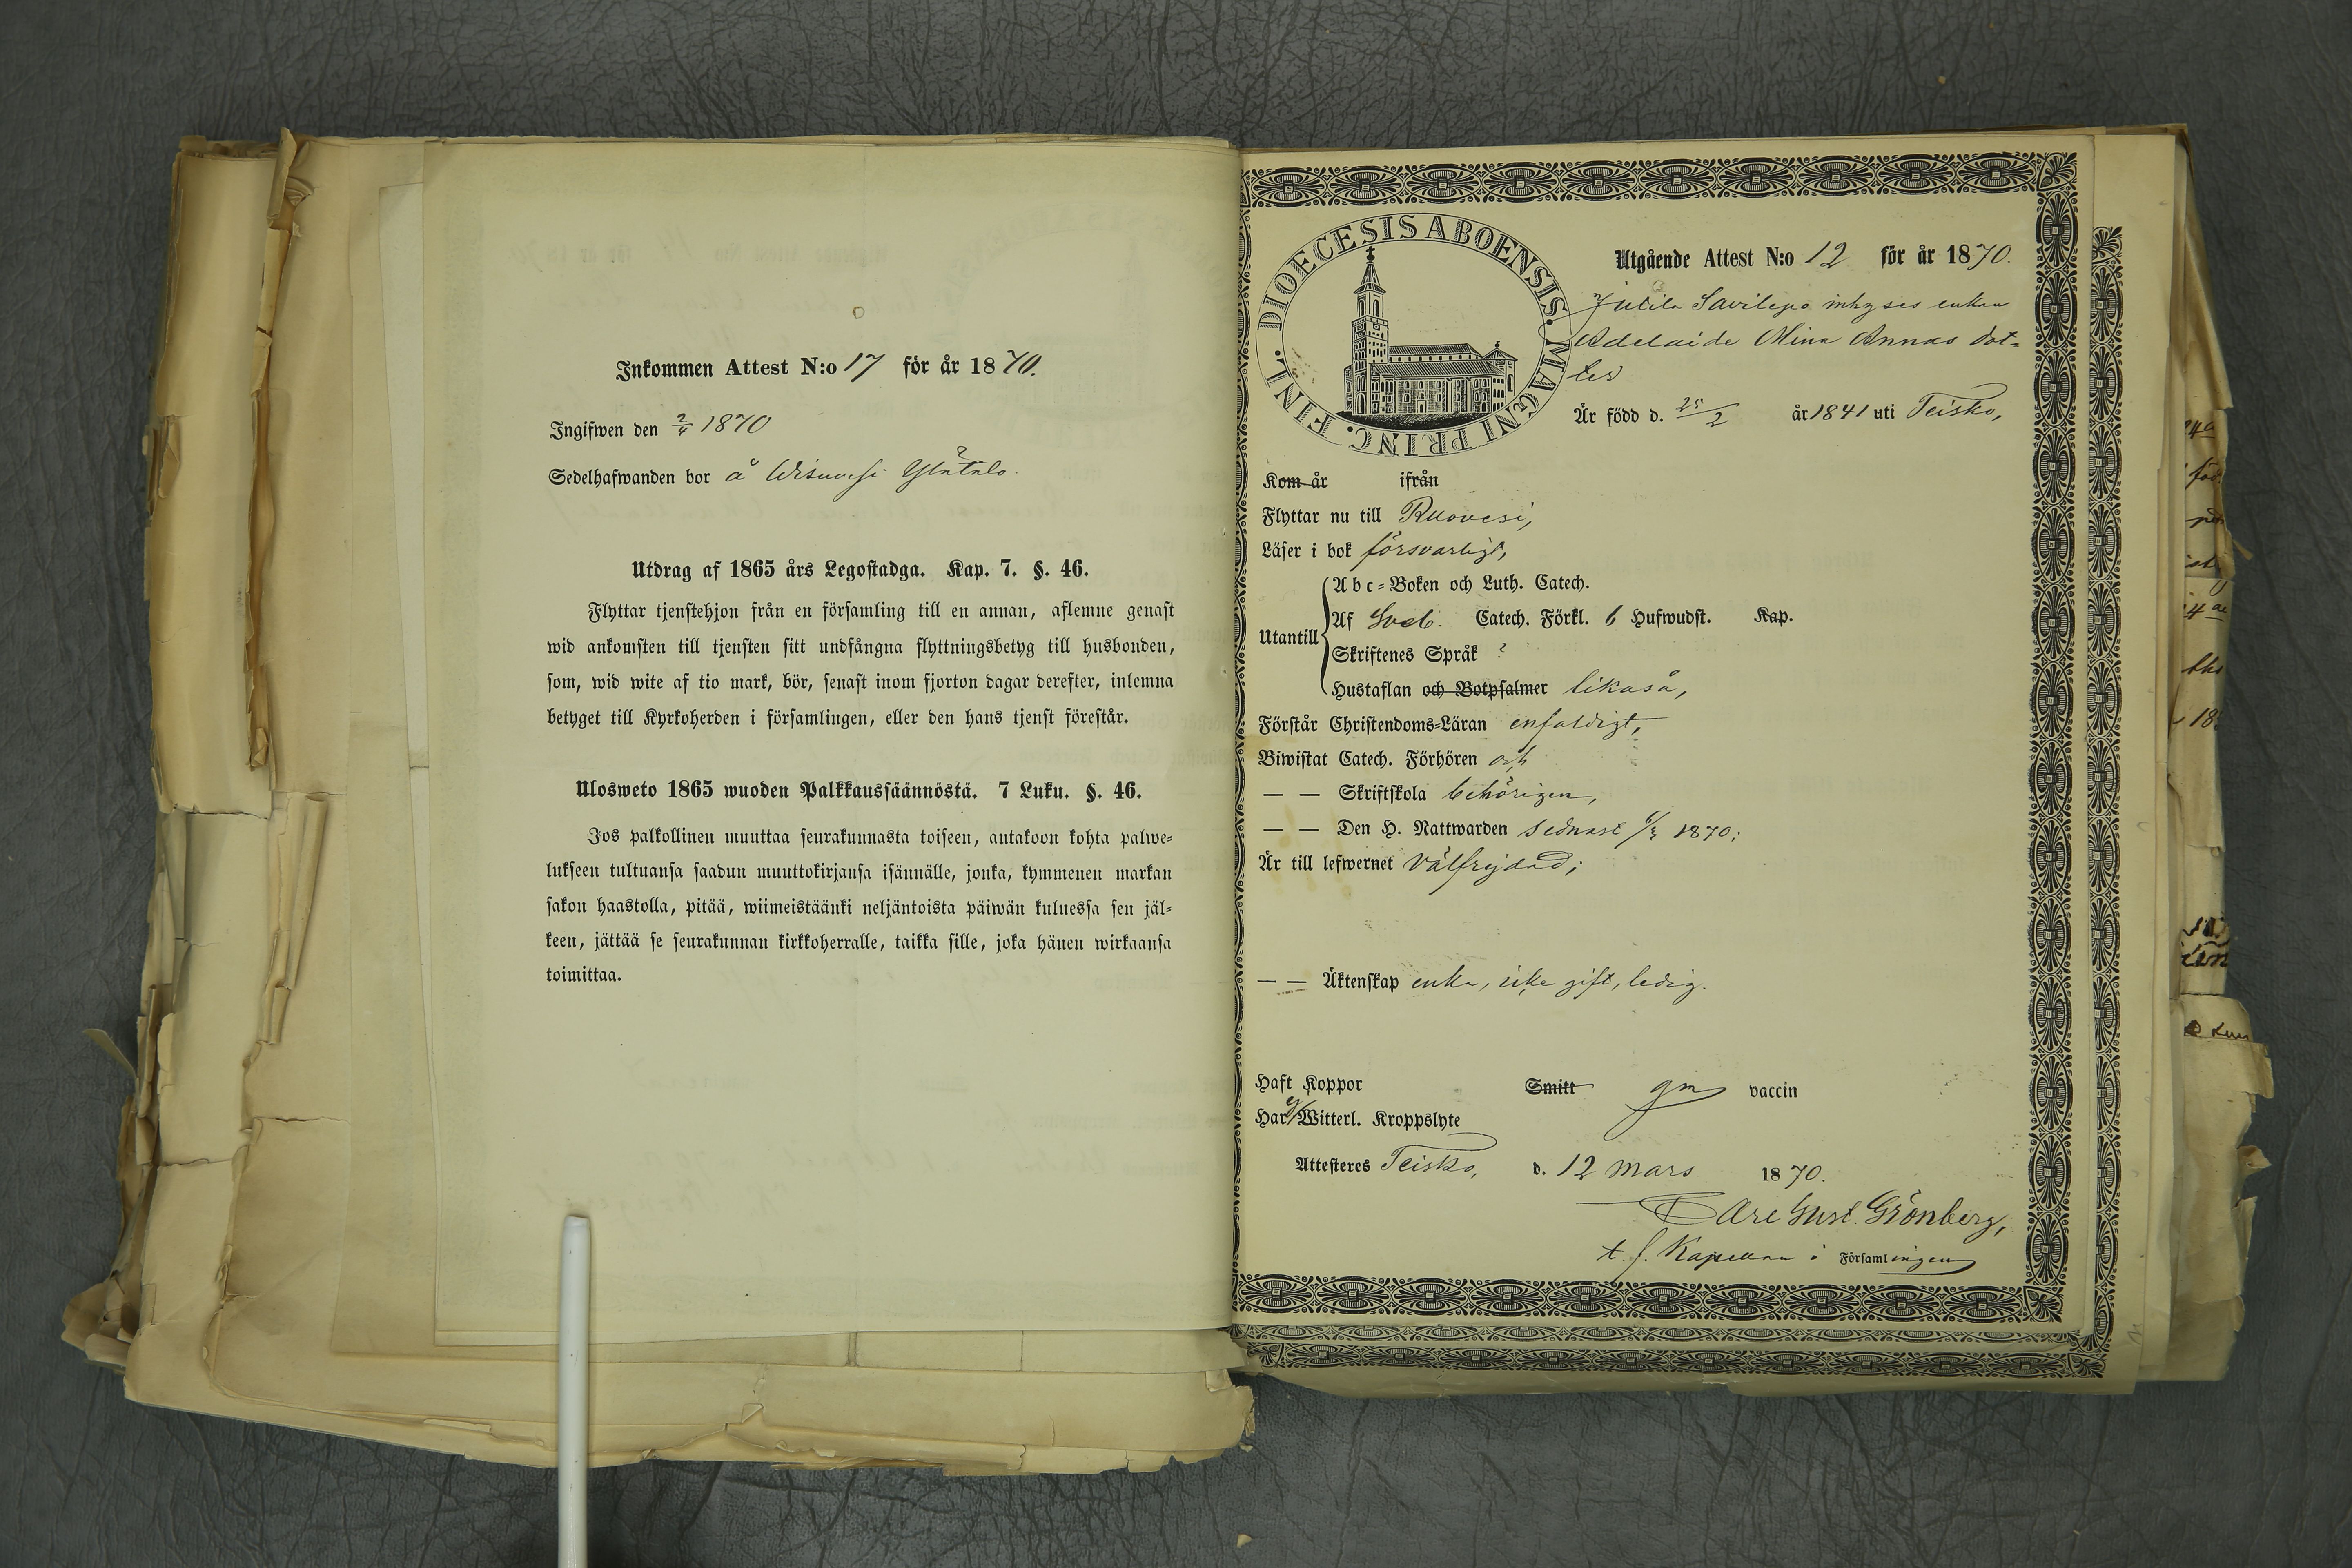 Inkommen Attest N:o 17 för år 1870.
Ingifwen den 2/4 1870
Sedelhafwanden bor å Wisuvesi
Utdrag af 1865 års Legostadga. Kap. 7. §. 46.
Flyttar tjenstehjon från en församling till en annan, aflemne genast
wid ankomsten till tjensten sitt undfångna flyttningsbetyg till husbonden,
som, wid wite af tio mark, bör, senast inom fjorton dagar derefter, inlemna
betyget till Kyrkoherden i församlingen, eller den hans tjenst förestår.
Ulosweto 1865 wuoden Palkkaussäännöstä. 7 Luku. §. 46.
Jos palkollinen muuttaa seurakunnasta toiseen, antakoon kohta palwe-
lukseen tultuansa saadun muuttokirjansa isännälle, jonka, kymmenen markan
sakon haastolla, pitää, wiimeistäänki neljäntoista päiwän kuluessa sen jäl-
keen, jättää se seurakunnan kirkkoherralle, taikka sille, joka hänen wirkaansa
toimittaa.
DIOECESIS ABOENSIS. MAGNI PRINC. FINL.
Utgående Attest N:o 12 för år 1870.
Savilepo inhyses enkan
Adelaide Mina Annas dot-
ter
Är född d. 25/2 år 1841 uti Teisko,
Kom år ifrån
Flyttar nu till Ruovesi,
Läser i bok försvarligt,
Utantill
Abc-Boken och Luth. Catech.
Af Sveb. Catech. Förkl. 6 Hufwudst. Kap.
Skriftenes Språk ?
Hustaflan och Botpsalmer likaså,
Förstår Christendoms-Läran enfaldigt,
Biwistat Catech. Förhören och
— — Skriftskola behörigen,
— — Den H. Nattwarden sednast 1870;
Är till lefwernet välfrejdad;
— — Äktenskap enka, icke gift, ledig.
Haft Koppor Smitt gm vaccin
Har ej Witterl. Kroppslyte
Attesteres Teisko, d. 12 mars 1870.
Carl Gust. Grönberg,
t. f. Kapellan i Församlingen